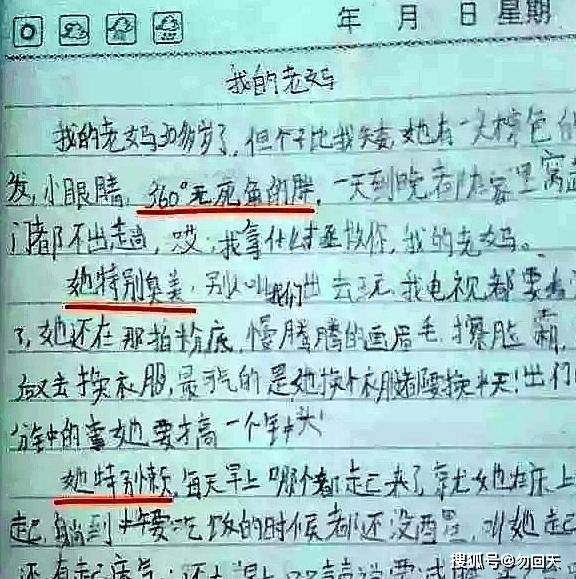 年 月 日 星期
我的老妈
我的老妈30多岁了,但个子比我矮,她有一头棕色的
发,小眼睛,360°无死角的胖,一天到晚都在家里窝
门都不出趟,哎:我拿什么拯救你,我的老妈。
她特别臭美,别人叫我们出去玩,我电视都要看
了,她还在那拍粉底,慢腾腾的画眉毛,擦脸霜,
又去换衣服,最气的是她换个衣服都要换半天!出门
分钟的事她要搞一个半钟头!
她特别懒,每天早上哪个都起来了,就她在床上
起,到中午要吃饭的时候都还没,叫她起
还有起床气;还
搜狐号@勿回天